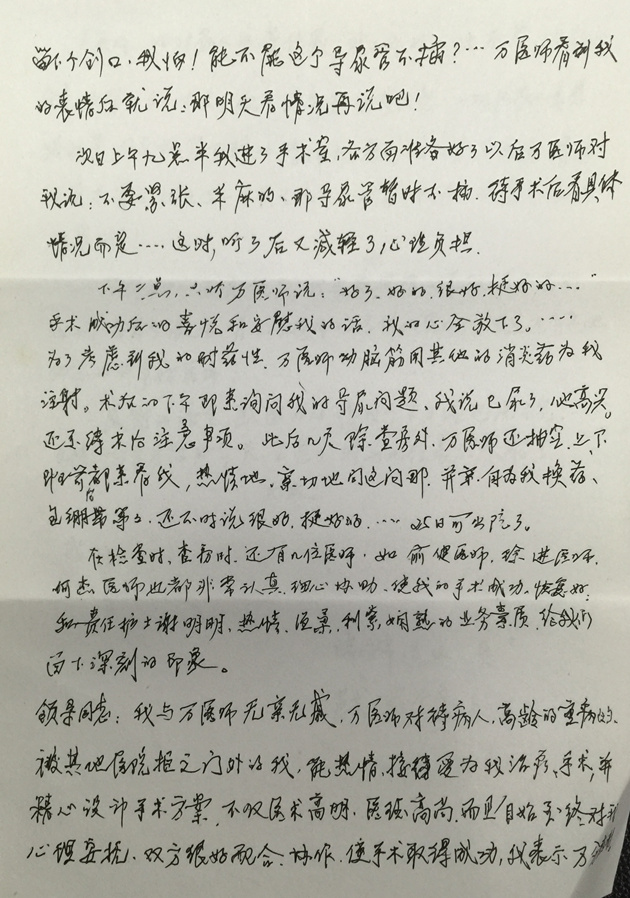 留下个创口，我怕！能不能这个导尿管不插？… 万医师看到我
的表情后就说：那明天看情况再说吧！
次日上午九点半我进了手术室，各方面准备好了以后万医师对
我说：不要紧张、半麻的、那导尿管暂时不插. 待手术后看具体
情况而定…. 这时，听了后又减轻了心理负担.
下午二点，只听万医师说："好了、好的、很好、挺好的…"
手术成功后的喜悦和安慰我的话. 我的心全放下了。….
为了考虑到我的耐药性、万医师动脑筋用其他的消炎药为我
注射。术后的下午即来询问我的导尿问题、我说已尿了，他高兴，
还交待术后注意事项。此后几天除查房外. 万医师还抽空上、下
午都来看我，热情地、亲切地问这问那. 并亲自为我换药、
包绷带等等. 还不时说很好. 挺好的. …. 25日可出院了。
在检查时、查房时. 还有几位医师. 如俞健医师、徐进医师.
何杰医师也都非常认真. 细心协助、使我的手术成功. 恢复好.
和责任护士谢明明、热情、温柔、利索，娴熟的业务素质. 给我们
留下深刻的印象。
领导同志：我与万医师无亲无戚，万医师对待病人，高龄的重病的、
被其他医院拒之门外的我，能热情、接待愿为我治疗、手术，并
精心设计手术方案. 不仅医术高明、医德高尚. 而且自始至终对我
心理安抚、双方很好配合、协作. 使手术取得成功，我表示万